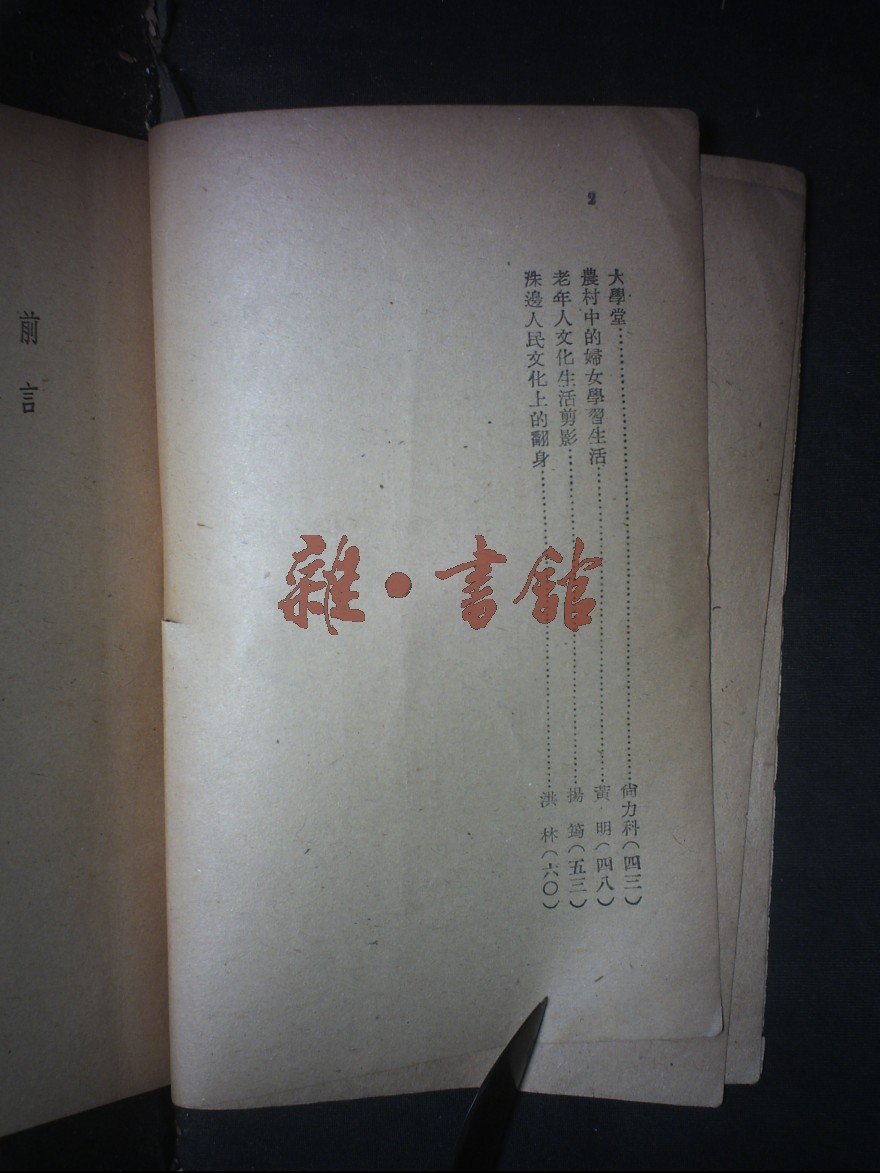 2
大學堂……尙力科(四三)
農村中的婦女學習生活……黃　明(四八)
老年人文化生活剪影……楊　筠(五三)
洙邊人民文化上的翻身……洪　林(六〇)
前言
雜·書館